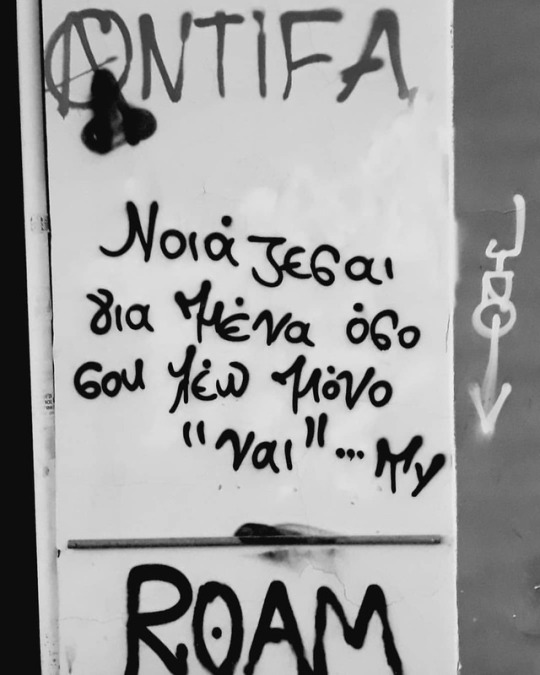 ANTIFA
Νοιάζεσαι
για μένα όσο
σου λέω μόνο
"ναι"... My
ROAM